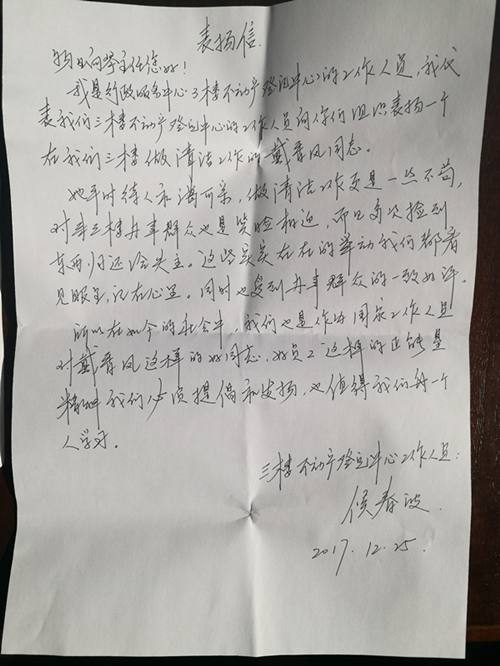 表扬信
物业向学主任您好！
我是行政服务中心3楼不动产登记中心的工作人员，我代
表我们三楼不动产登记中心的工作人员向你们组织表扬一个
在我们三楼做清洁工作的戴春凤同志。
她平时待人和谒可亲，做清洁工作更是一丝不苟，
对来三楼办事群众也是笑脸相迎，而且多次捡到
东西归还给失主。这些实实在在的举动我们都看
见眼里，记在心里。同时也受到办事群众的一致好评。
所以在如今的社会中，我们也是作为国家工作人员
对戴春凤这样的好同志，好员工这样的正能量
精神我们必须提倡和发扬，也值得我们每一个
人学习。
三楼不动产登记中心工作人员：
侯春波
2017.12.25.